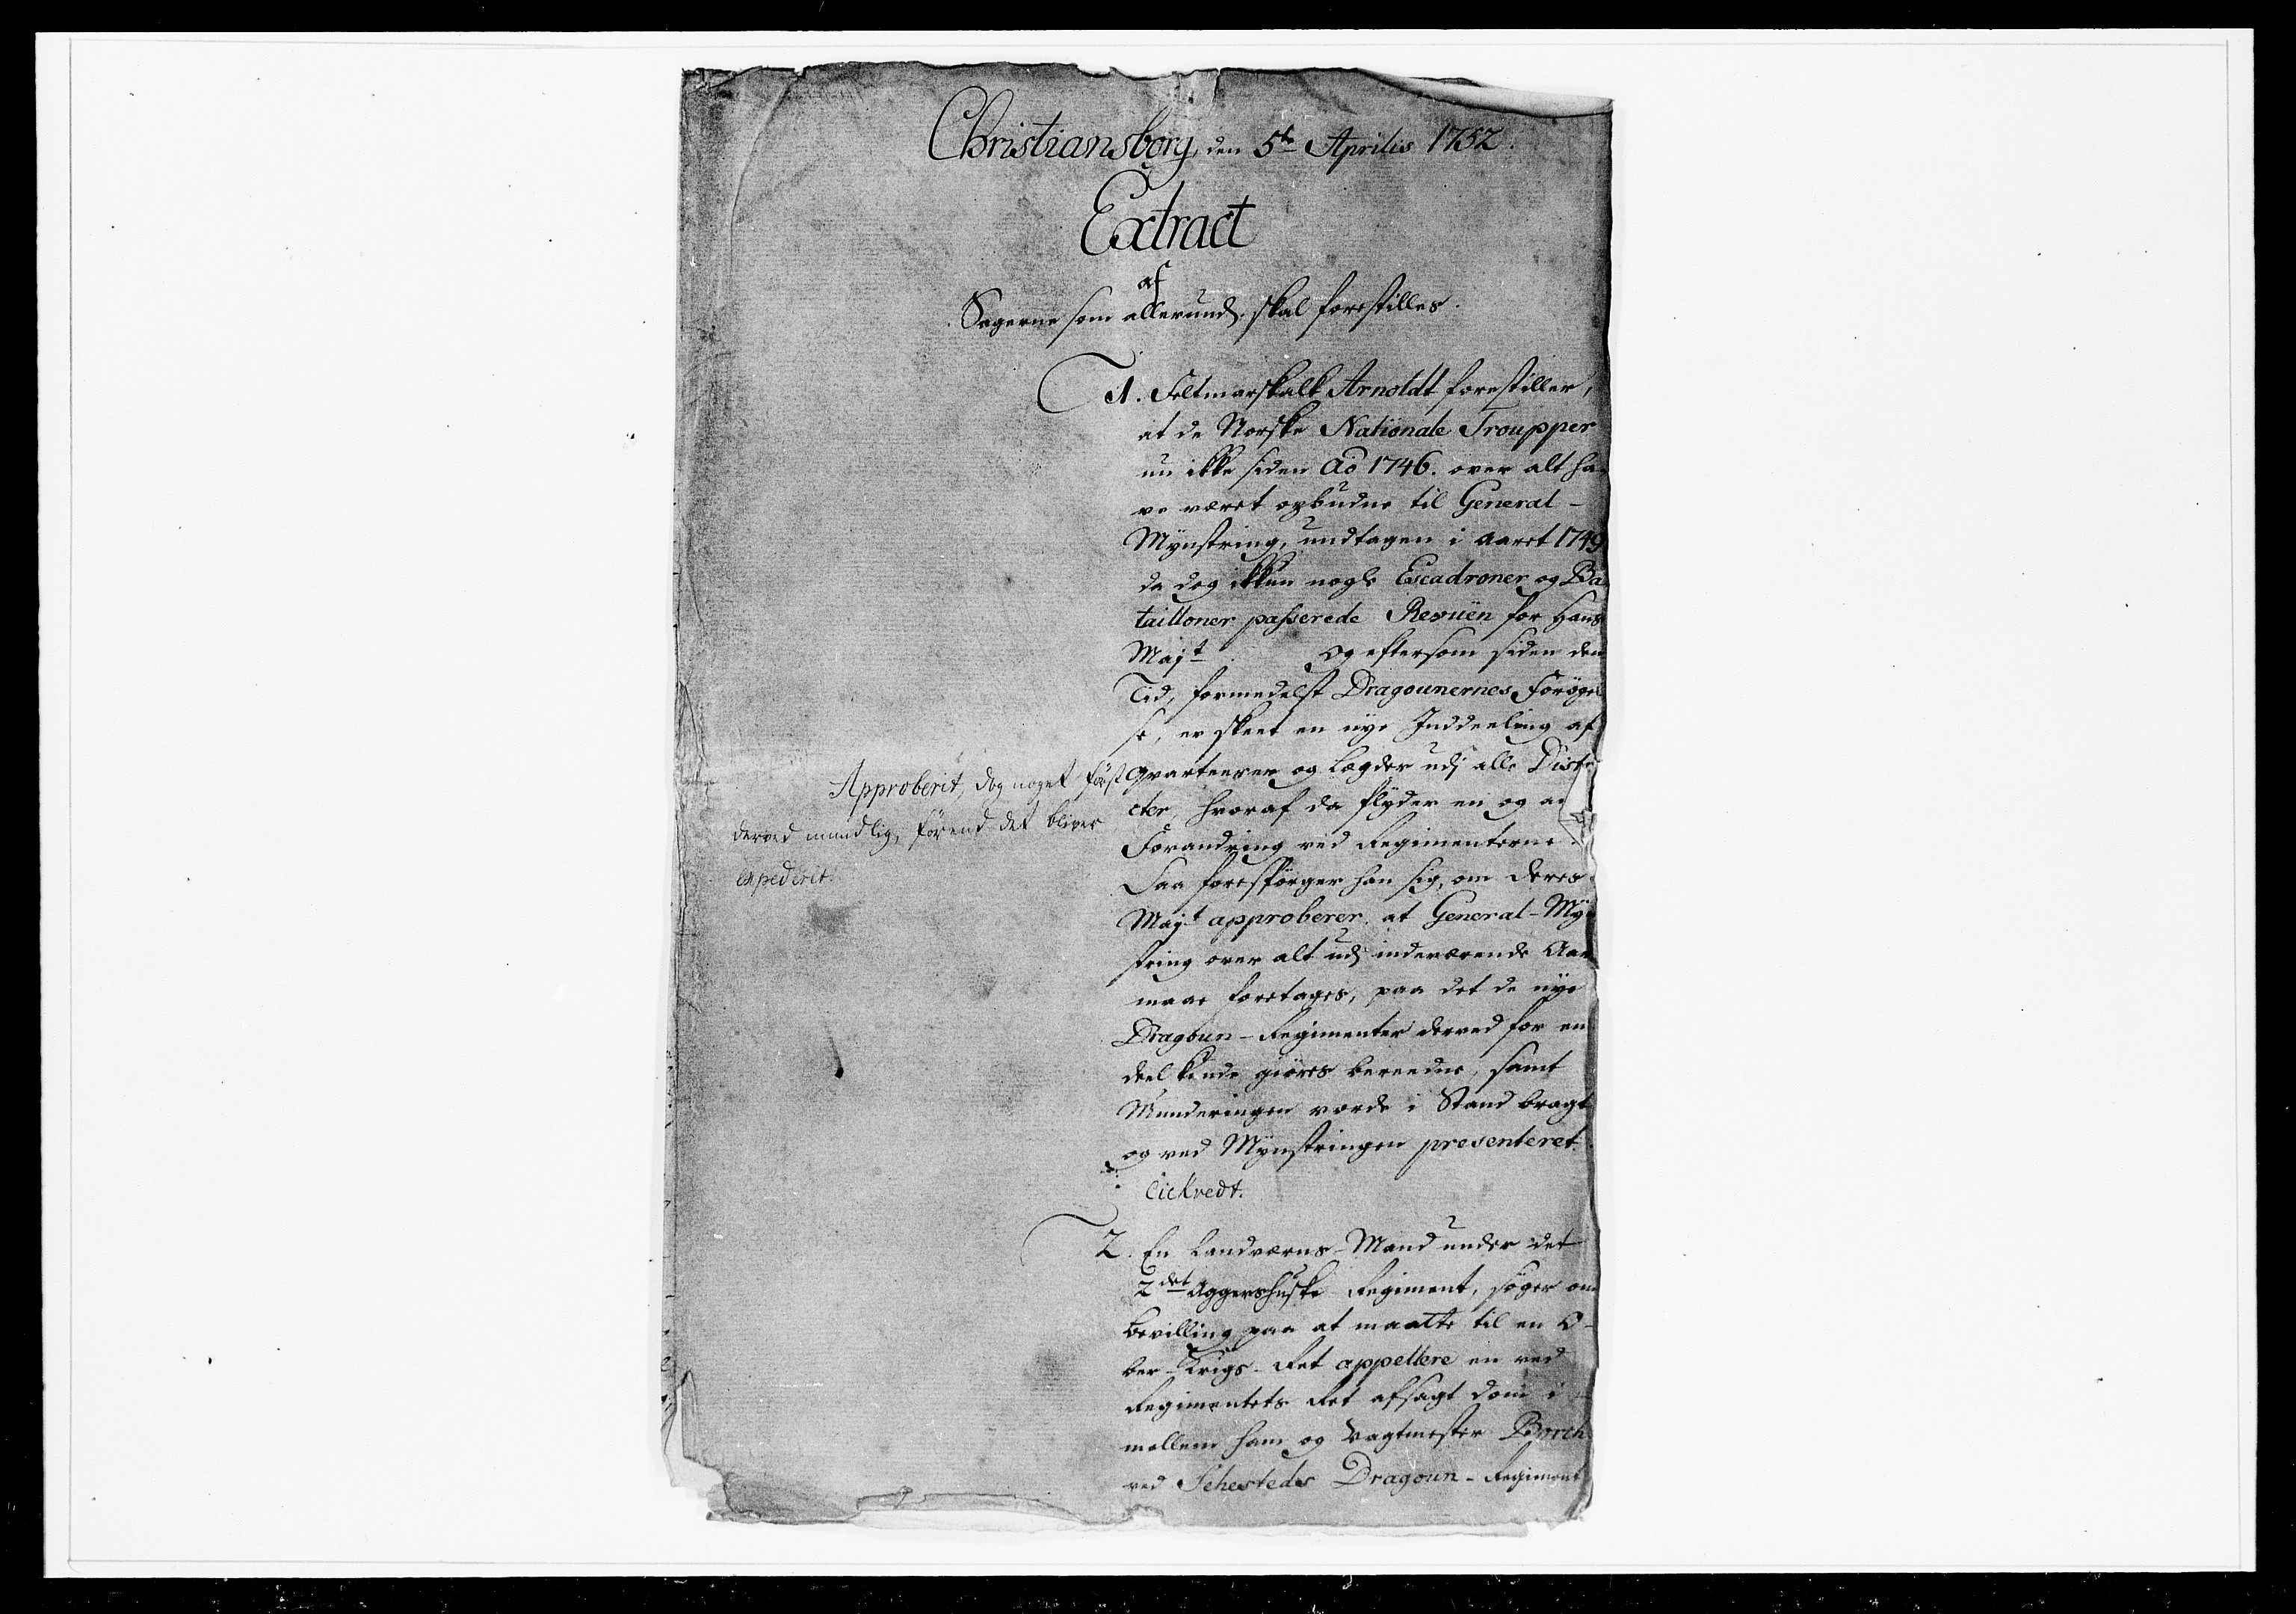 Christiansborg, den 5te Aprilis 1752.
Extract
af
Sagerne som allerund. skal forestilles.
1. Feltmarskalk Arnoldt forestiller,
at de Norske Nationale Troupper
nu ikke siden Ao 1746. over alt ha-
ve været opbudne til General-
Mynstring, undtagen i Aaret 1749
da dog ikkun nogle Escadroner og Ba-
tailloner passerede Revüen for Hans
Majt. Og eftersom siden den
Tid, formedelst Dragounernes Forøgel-
se, er skeet en nye Inddeeling af
Qvarteerer og Lægder udj alle Distri-
cter, hvoraf da flyder en og an
Forandring ved Regimenterne.
Saa forespörger han sig, om Deres
Majt approberer, at General-Myn-
string over alt udj indeværende Aar
maae foretages, paa det de nye
Dragoun-Regimenter derved for en
deel kunde giöres bereedne, samt
Munderingen vorde i Stand bragt
og ved Mynstringen presenteret.
Approberit, dog noget först
derved mundlig, förend det bliver
expederit.
2. En Landværns-Mand under det
2det Aggershuske Regiment, söger om
Bevilling paa at maatte til en O-
ber-Krigs-Ret appellere en ved
Regimentets Ret afsagt Dom i-
mellem ham og Vagtmester Borch
ved Schesteds Dragoun-Regiment